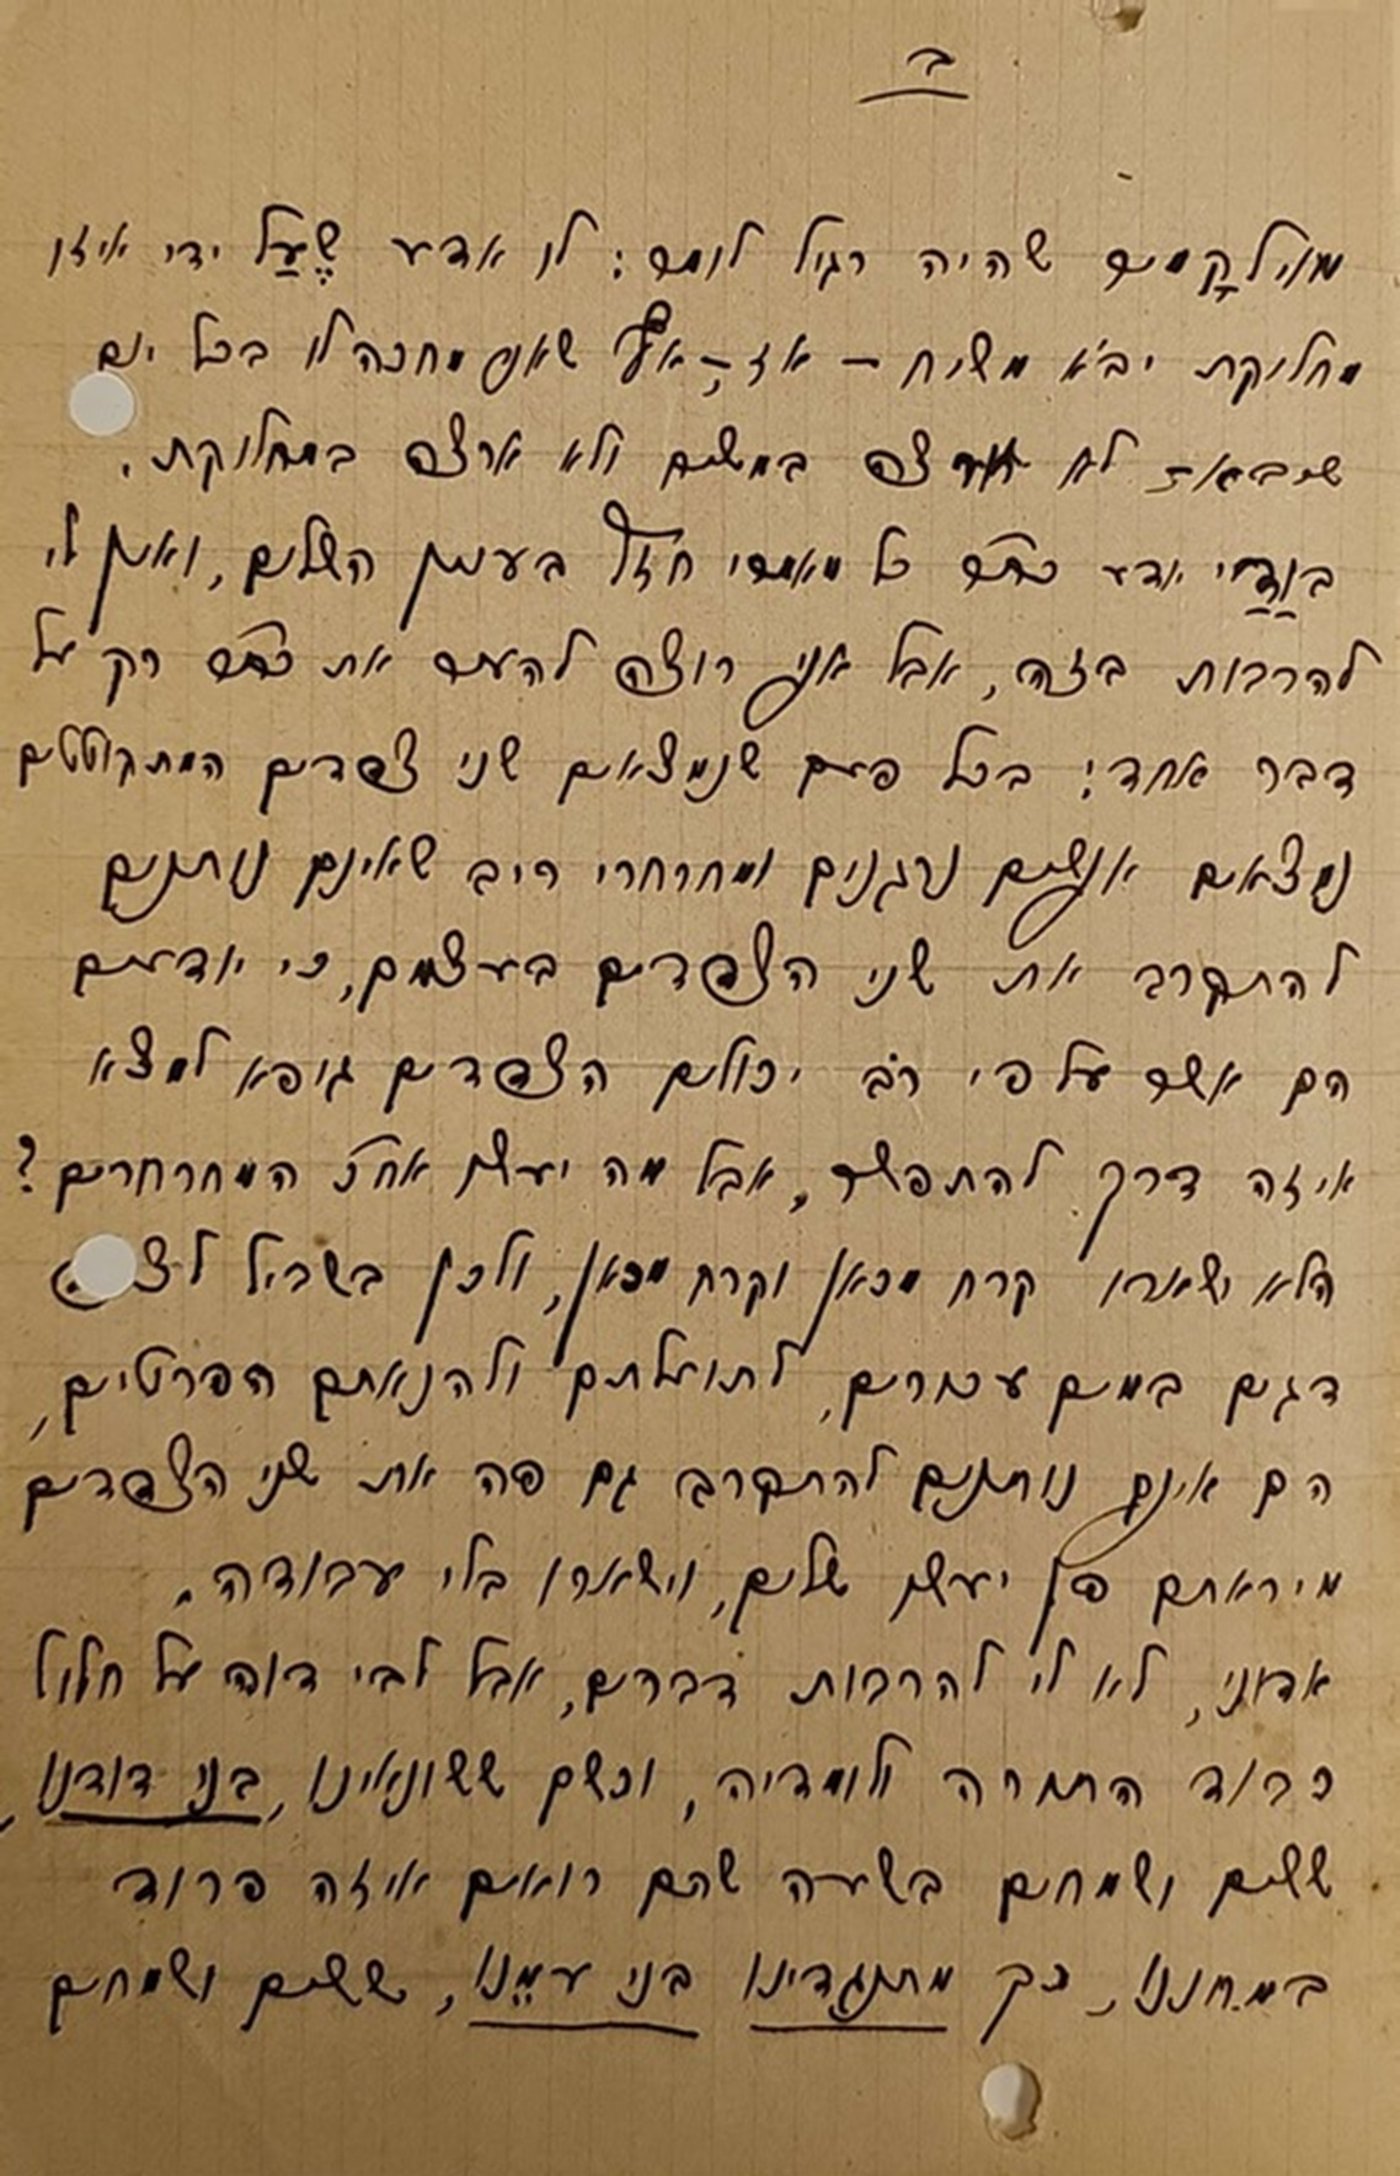 ב
שהיה רגיל לומר: לו אדע שֶעַל ידי איזו
מחלוקת יבא משיח – אז, אף שאני מחכה לו בכל יום
שיבא, לא ארצה במשיח ולא ארצה במחלוקת.
בוַדַאי ידע כתר כל מאמרי חז"ל בענין השלום, ואין לי
להרבות בזה, אבל אני רוצה להעיר את כתר רק על
דבר אחד: בכל פעם שנמצאים שני צדדים המתקוטטים
נמצאים אנשים נרגנים ומחרחרי ריב שאינם נותנים
להתקרב את שני הצדדים בעצמם, כי יודעים
הם אשר על פי רֹב יכולים הצדדים גופא למצא
איזה דרך להתפשר, אבל מה יעשו אח"כ המחרחרים?
הלא ישארו קרח מכאן וקרח מכאן, ולכן בשביל לצוד
דגים במים עכורים, לתועלתם ולהנאתם הפרטים,
הם אינם נותנים להתקרב גם פה את שני הצדדים
מיראתם פן יעשו שלום, וישארו בלי עבודה.
אדוני, לא לי להרבות דברים, אבל לבי דוה על חלול
כבוד התורה ולומדיה, וכשם ששונאינו, בני דודנו,
ששים ושמחים בשעה שהם רואים איזה פרוד
במחננו, כך מתנגדינו בני עמֵנו, ששים ושמחים